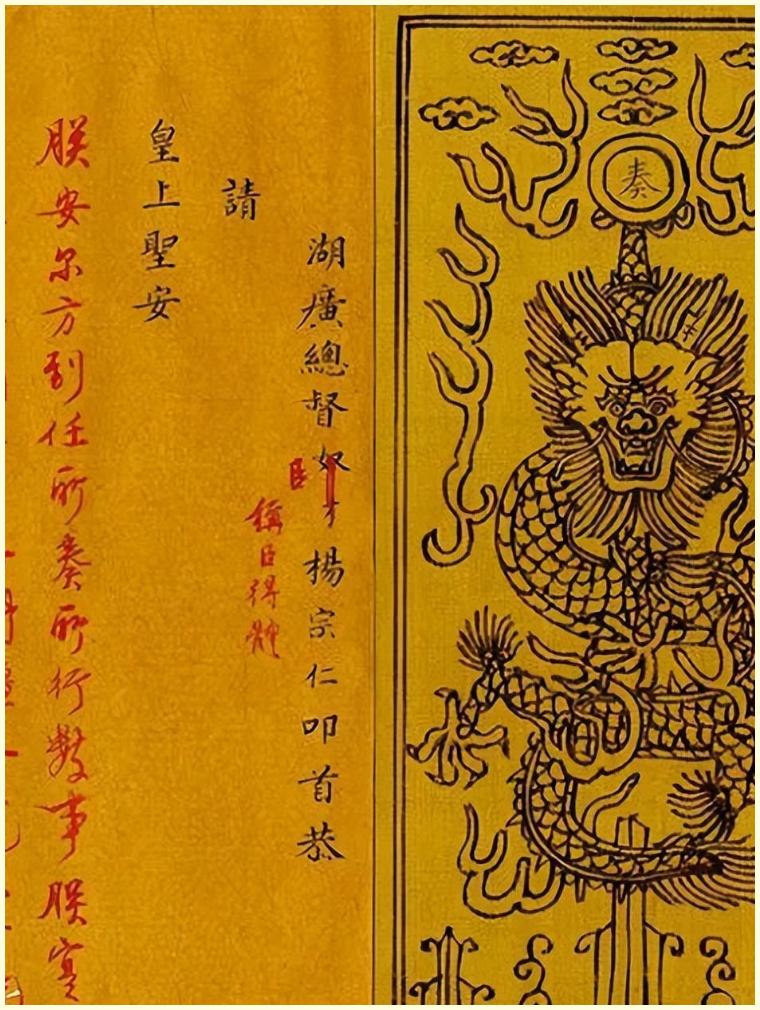 奏
湖廣總督奴才楊宗仁叩首恭
臣
稱臣得體
請
皇上聖安
朕安尔方到任所奏所行數事朕實